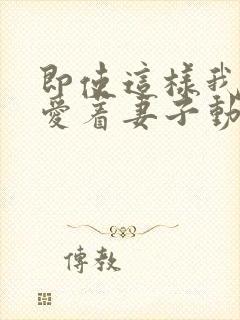 即使這樣我
愛着妻子動
傳教